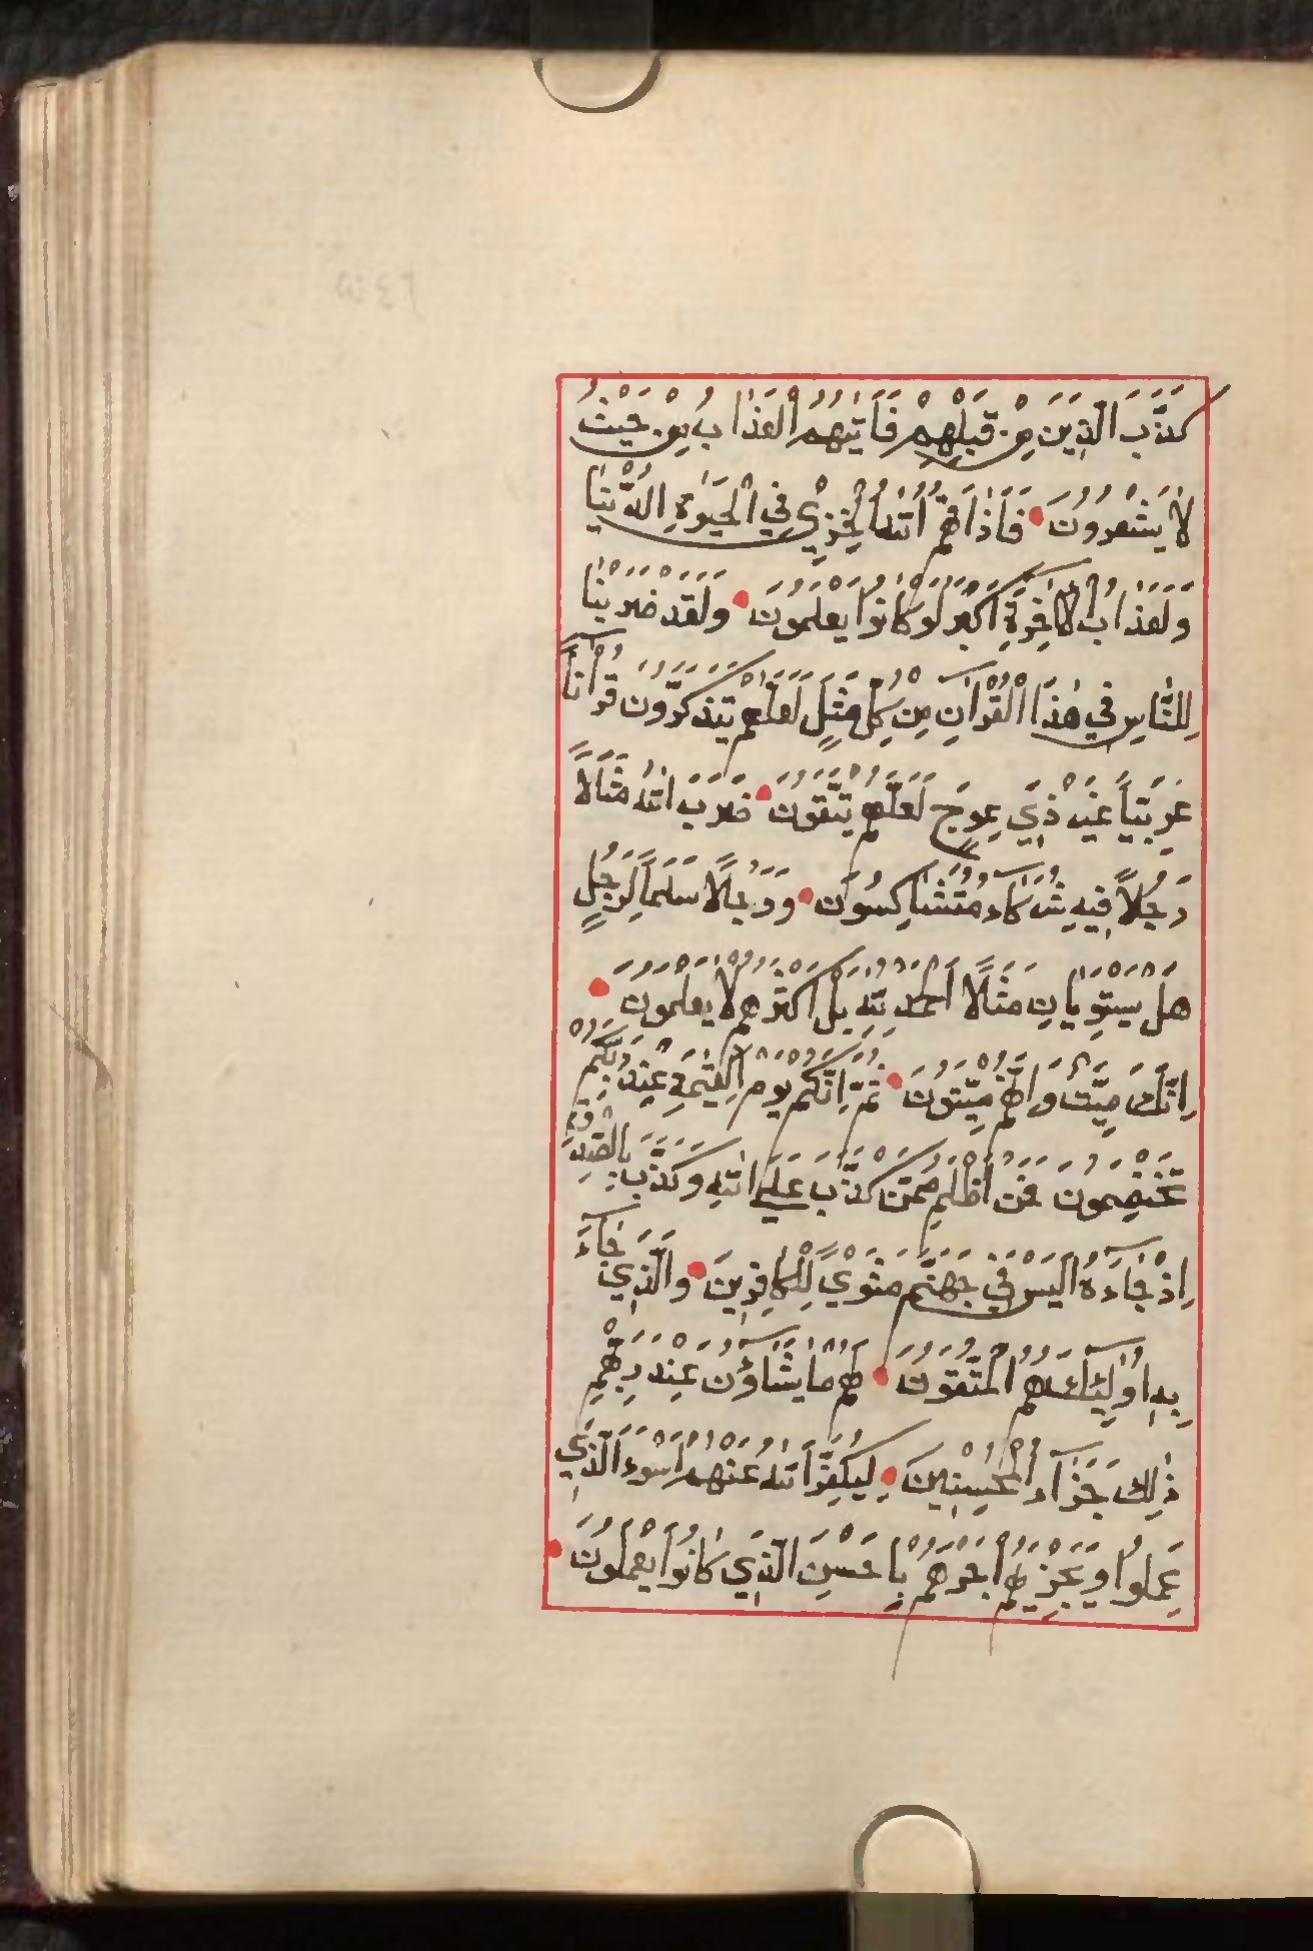 كَذَّبَ الَّذِينَ مِنْ قَبْلِهِمْ فَأَتٰيهُمُ الْعَذَابُ مِنْ حَيْثُ
لَا يَشْعُرُونَ فَأَذَاقَهُمُ اللّٰهُ الْخِزْيَ فِي الْحَيٰوةِ الدُّنْيَا
وَلَعَذَابُ الْاٰخِرَةِ اَكْبَرُ لَوْ كَانُوا يَعْلَمُونَ وَلَقَدْ ضَرَبْنَا
لِلنَّاسِ فِي هٰذَا الْقُرْاٰنِ مِنْ كُلِّ مَثَلٍ لَعَلَّهُمْ يَتَذَكَّرُونَ قُرْاٰناً
عَرَبِيّاً غَيْرَ ذِي عِوَجٍ لَعَلَّهُمْ يَتَّقُونَ ضَرَبَ اللّٰهُ مَثَلًا
رَجُلاً فِيهِ شُرَكَاءُ مُتَشَاكِسُونَ وَرَجُلًا سَلَماً لِرَجُلٍ
هَلْ يَسْتَوِيَانِ مَثَلًا اَلْحَمْدُ لِلّٰهِ بَلْ اَكْثَرُهُمْ لَا يَعْلَمُونَ
اِنَّكَ مَيِّتٌ وَاِنَّهُمْ مَيِّتُونَ ثُمَّ اِنَّكُمْ يَوْمَ الْقِيٰمَةِ عِنْدَ رَبِّكُمْ
تَخْتَصِمُونَ فَمَنْ اَظْلَمُ مِمَّنْ كَذَبَ عَلَي اللّٰهِ وَكَذَّبَ بِالصِّدْقِ
اِذْ جَاءَهُ اَلَيْسَ فِي جَهَنَّمَ مَثْوًي لِلْكَافِرِينَ وَالَّذِي جَاءَ
بِهِ اُولٰئِكَ هُمُ الْمُتَّقُونَ لَهُمْ مَا يَشَاؤُنَ عِنْدَ رَبِّهِمْ
ذٰلِكَ جَزَاءُ الْمُحْسِنِينَ لِيُكَفِّرَ اللّٰهُ عَنْهُمْ اَسْوَءَ الَّذِي
عَمِلُوا وَيَجْزِيَهُمْ اَجْرَهُمْ بِاَحْسَنِ الَّذِي كَانُوا يَعْمَلُونَ